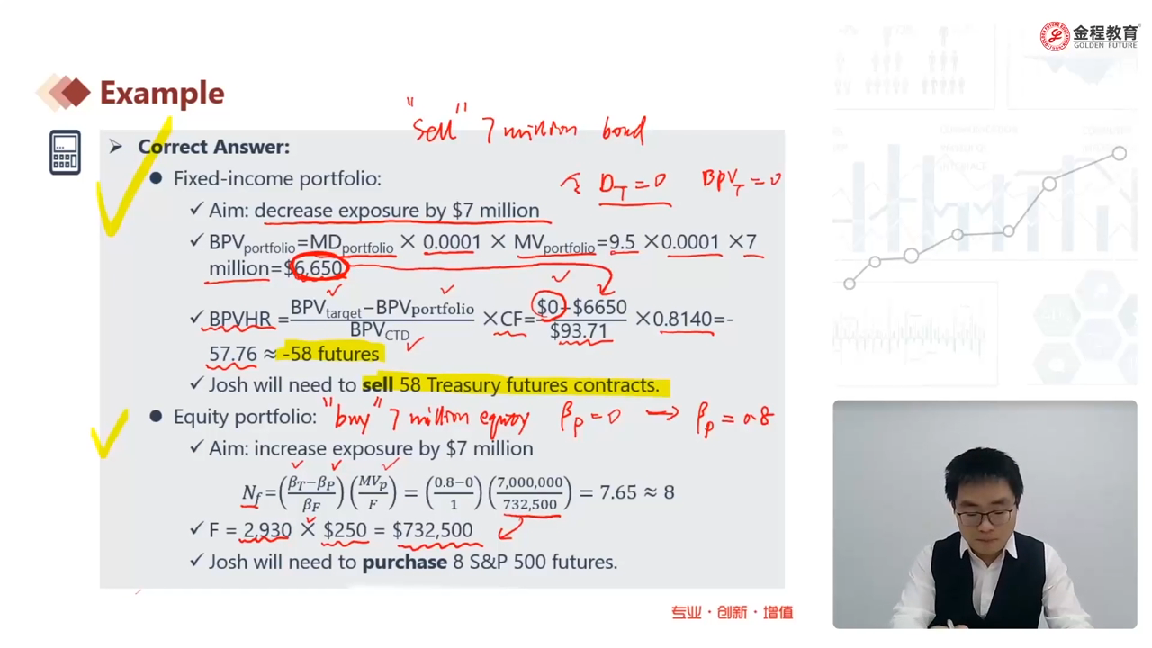 金程教育
GOLDEN FUTURE
Example
"sell" 7 million bond
➤ Correct Answer:
● Fixed-income portfolio:
D_T=0 BPV_T=0
✓ Aim: decrease exposure by $7 million
✓ BPV_portfolio=MD_portfolio × 0.0001 × MV_portfolio=9.5 ×0.0001 ×7
million=$6,650
✓ BPVHR =(BPV_target−BPV_portfolio)/BPV_CTD ×CF=($0−$6650)/$93.71 ×0.8140=-
57.76 ≈ -58 futures
✓ Josh will need to sell 58 Treasury futures contracts.
● Equity portfolio: "buy" 7 million equity β_p=0 → β_p=0.8
✓ Aim: increase exposure by $7 million
N_f=((β_T−β_P)/β_F)(MV_p/F) = ((0.8−0)/1)(7,000,000/732,500) = 7.65 ≈ 8
✓ F = 2,930 × $250 = $732,500
✓ Josh will need to purchase 8 S&P 500 futures.
专业·创新·增值